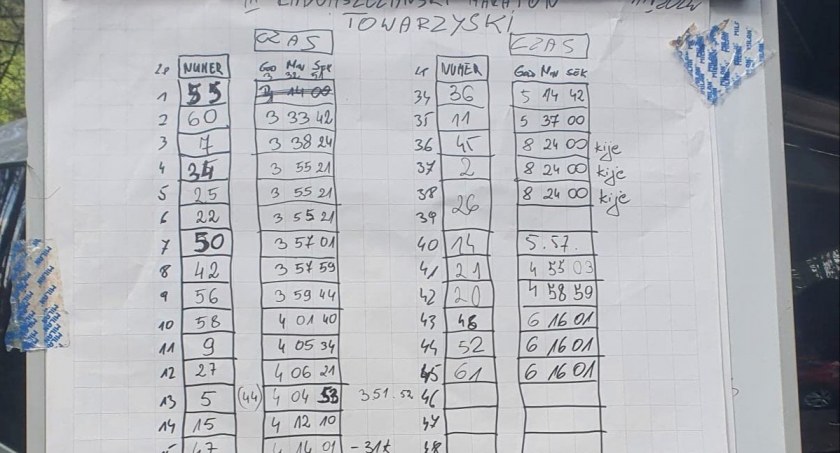 MARATON
TOWARZYSKI
CZAS CZAS
Lp NUMER God Min Sek Lp NUMER God Min Sek
3 32 51
1 55 3 14 00 34 36 5 14 42
2 60 3 33 42 35 11 5 37 00
3 7 3 38 24 36 45 8 24 00 kije
4 34 3 55 21 37 2 8 24 00 kije
5 25 3 55 21 38 26 8 24 00 kije
6 22 3 55 21 39
7 50 3 57 01 40 14 5.57.
8 42 3 57 59 41 21 4 55 03
9 56 3 59 44 42 20 4 58 59
10 58 4 01 40 43 48 6 16 01
11 9 4 05 34 44 52 6 16 01
12 27 4 06 21 45 61 6 16 01
13 5 (44) 4 04 53 351.52 46
14 15 4 12 10 47
47 4 14 01 - 31k 48